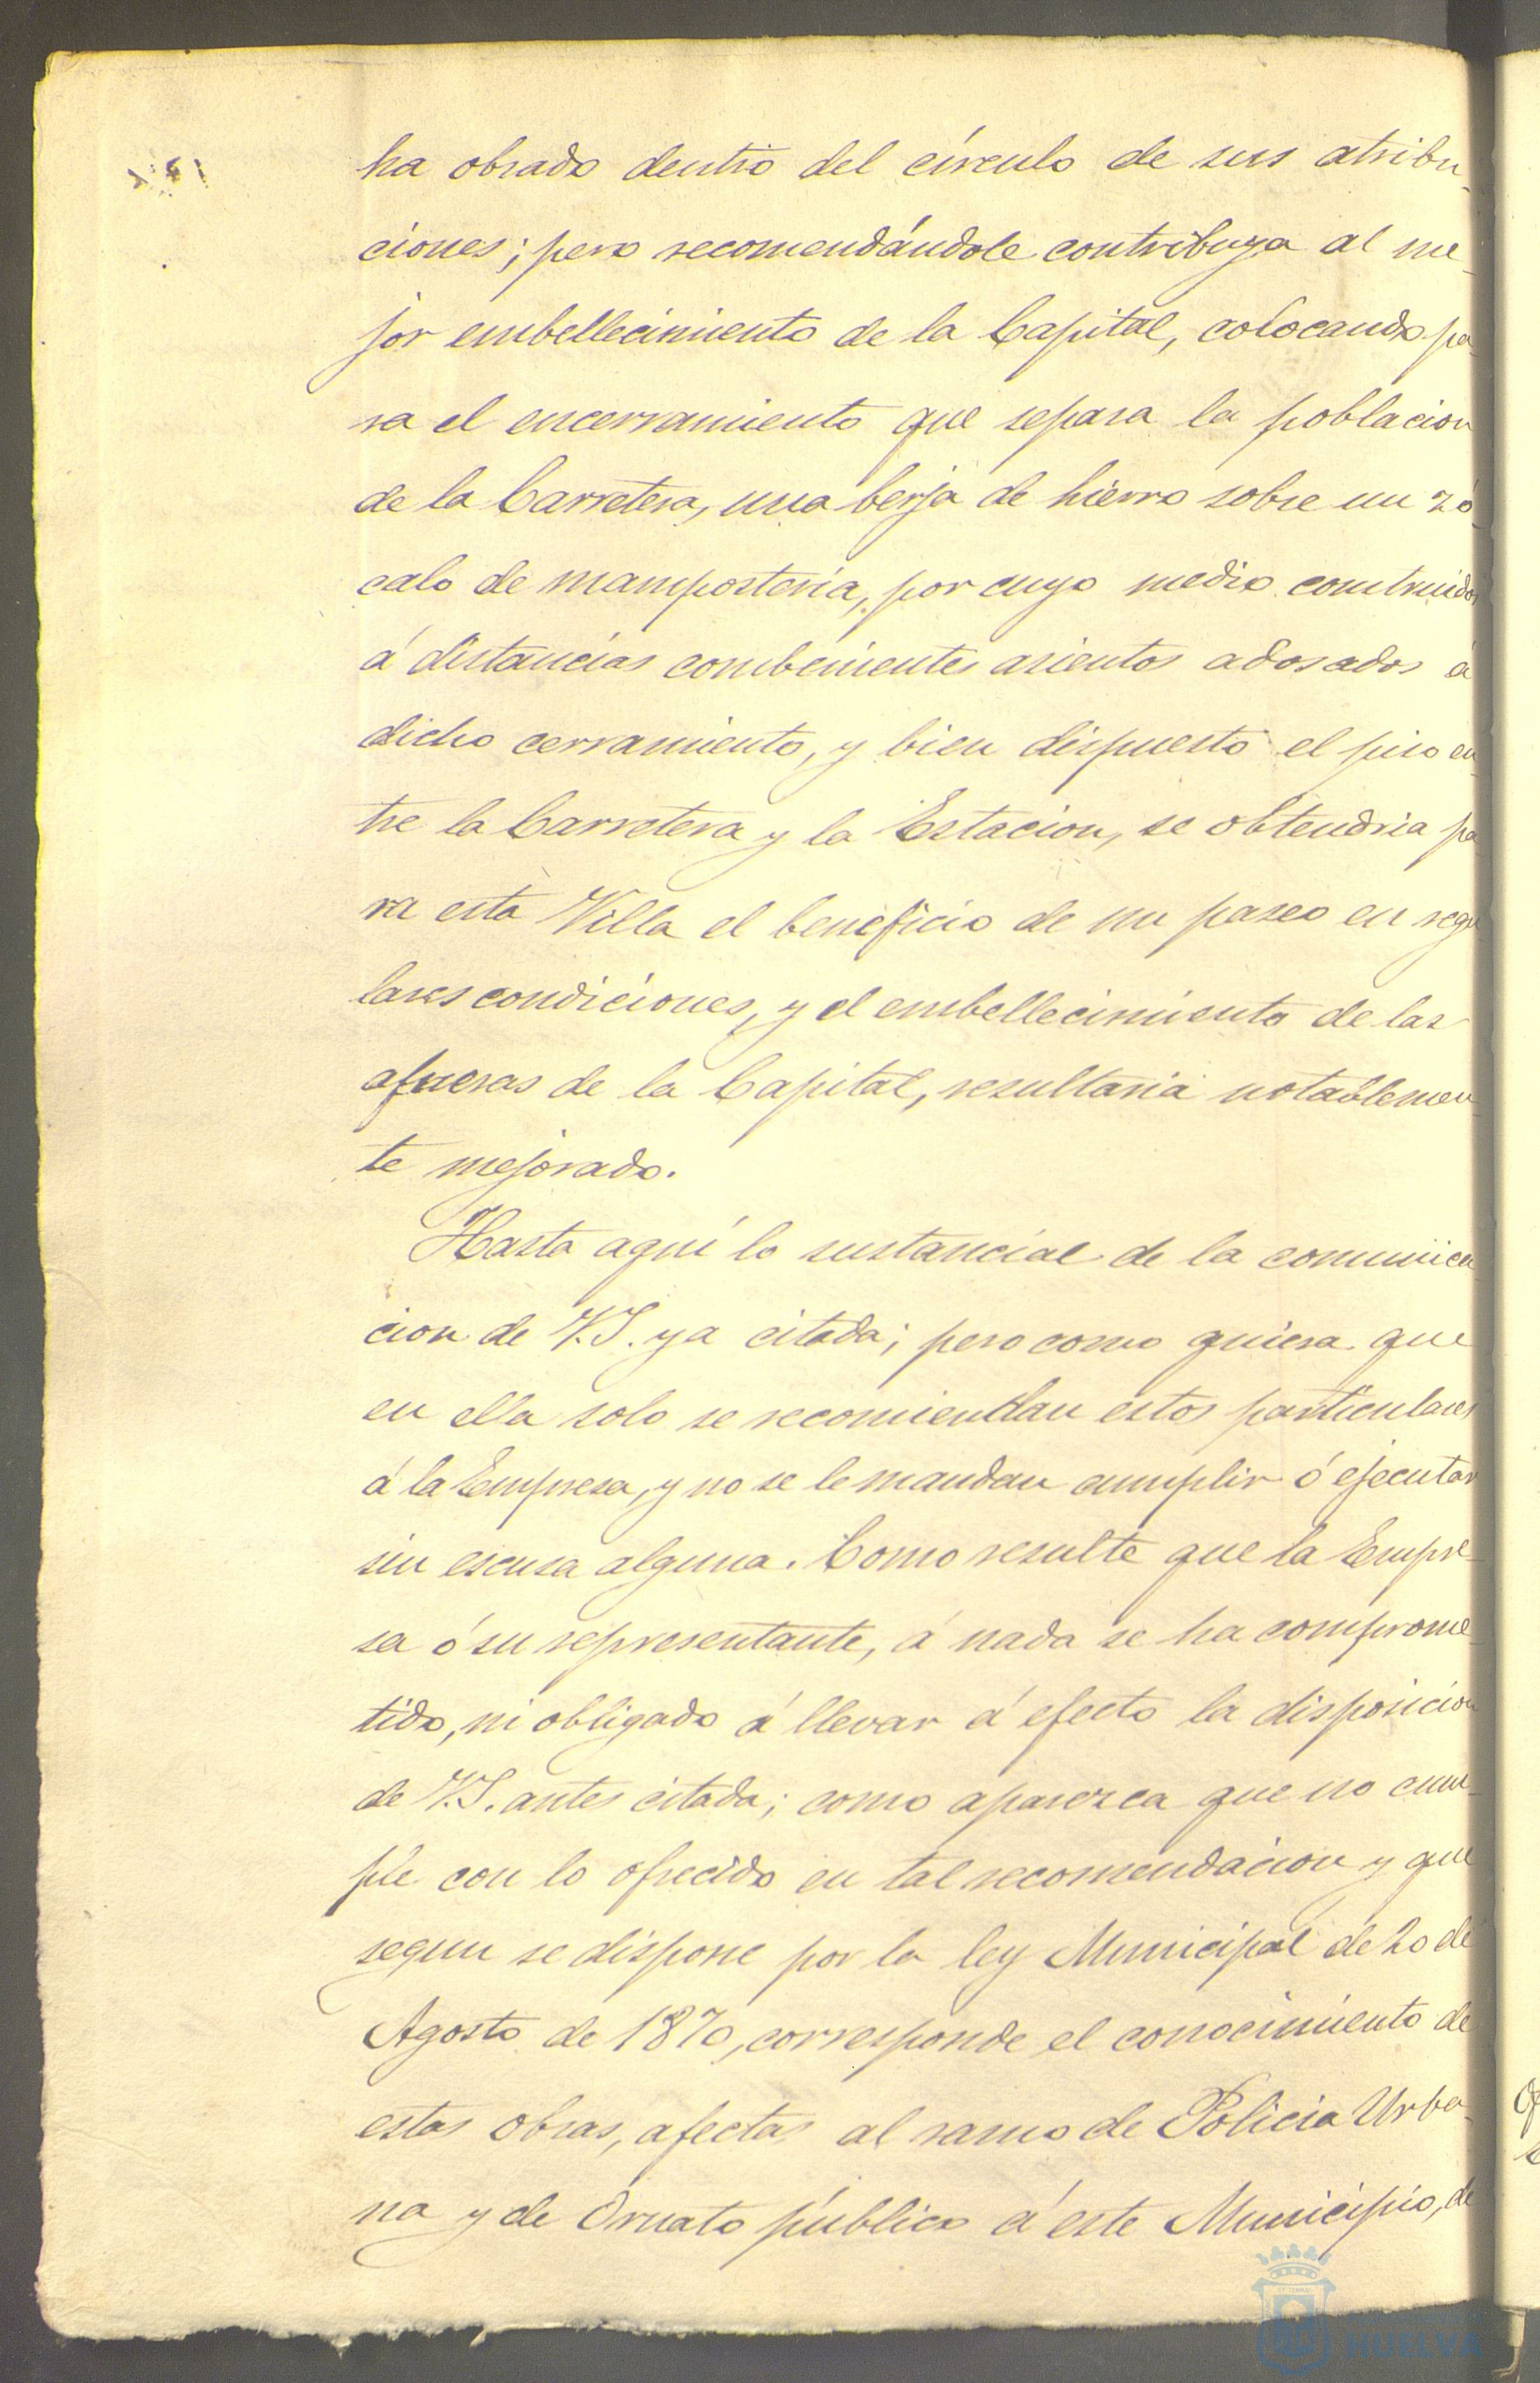 ha obrado dentro del círculo de sus atribu-
ciones; pero recomendándole contribuya al me-
jor embellecimiento de la Capital, colocando pa-
ra el encerramiento que separa la poblacion
de la Carretera, una berja de hierro sobre un zó-
calo de mamposteria, por cuyo medio construidos
á distancias combenientes asientos adosados á
dicho cerramiento, y bien dispuesto el piso en-
tre la Carretera y la Estacion, se obtendria pa
ra esta Villa el beneficio de un paseo en regu
lares condiciones, y el embellecimiento de las
afueras de la Capital, resultaria notablemen-
te mejorado.
Hasta aquí lo sustancial de la comunica
cion de V.S. ya citada; pero como quiera que
en ella solo se recomiendan estos particulares
á la Empresa, y no se le mandan cumplir ó ejecutar
sin escusa alguna. Como resulte que la Empre-
sa ó su representante, á nada se ha comprome-
tido, ni obligado á llevar á efecto la disposicion
de V.S. antes citada; como aparezca que no cum-
ple con lo ofrecido en tal recomendacion y que
segun se dispone por la ley Municipal de 20 de
Agosto de 1870, corresponde el conocimiento de
estas obras, afectas al ramo de Policia Urba-
na y de Ornato público á este Municipio, de
HUELVA